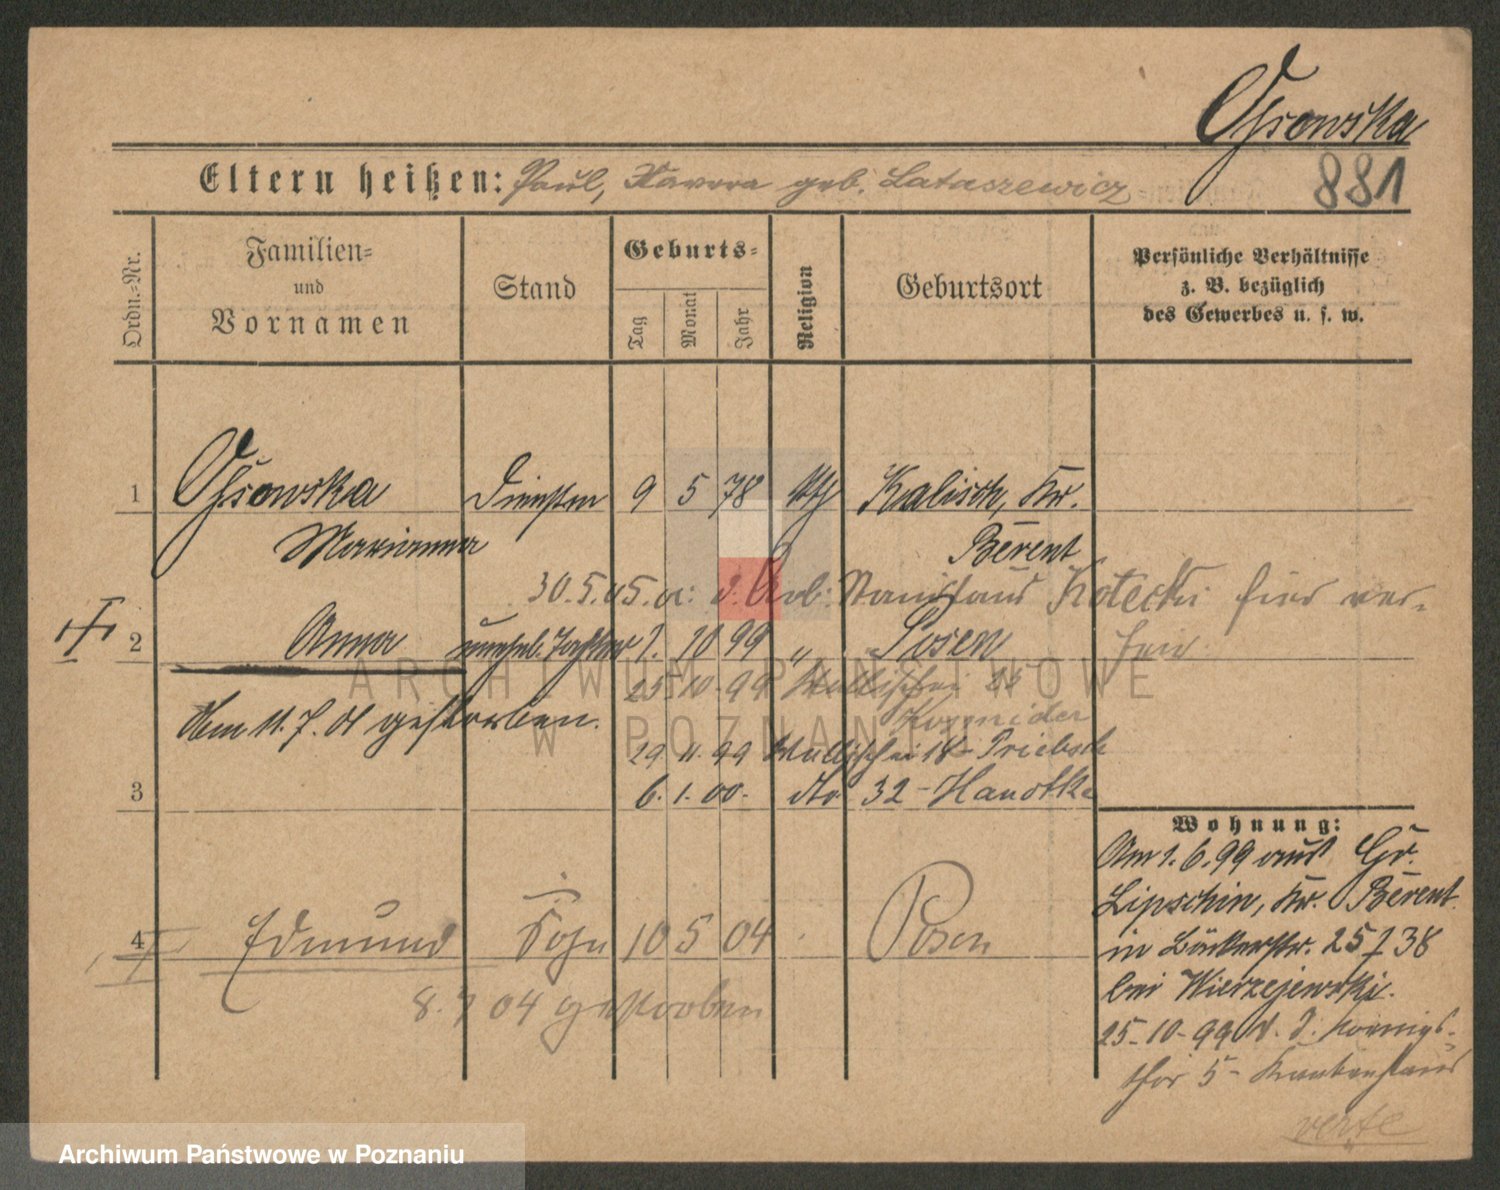 Ossowska
881
Eltern heißen: Paul, Xavera geb. Lataszewicz
Ordn.-Nr.
Familien-
und
Vornamen
Stand
Geburts-
Tag
Monat
Jahr
Religion
Geburtsort
Persönliche Verhältnisse
z. B. bezüglich
des Gewerbes u. s. w.
1 Ossowska 9 5 78 kth Kalisch, Kr.
Marianna Berent
30.5.05. a: d. Arb. Stanislaus Kotecki hier ver-
2 Anna unehel. Tochter 1. 10 99 " Posen
25 10. 99 Wallischei
Am 11. 7. 01 gestorben.
29 11. 99 Wallischei 18 - Priebsch
3 6. 1. 00. dto 32 -
Wohnung:
Am 1. 6. 99 aus Gr.
Lipschin, Kr. Berent
in Bäckerstr. 25 / 38
bei Wierzejewski.
4 Edmund Sohn 10 5 04 Posen
8. 7 04 gestorben
25-10-99 Koenigs-
thor 5 - Krankenhaus
verte
ARCHIWUM PAŃSTWOWE
W POZNANIU
Archiwum Państwowe w Poznaniu